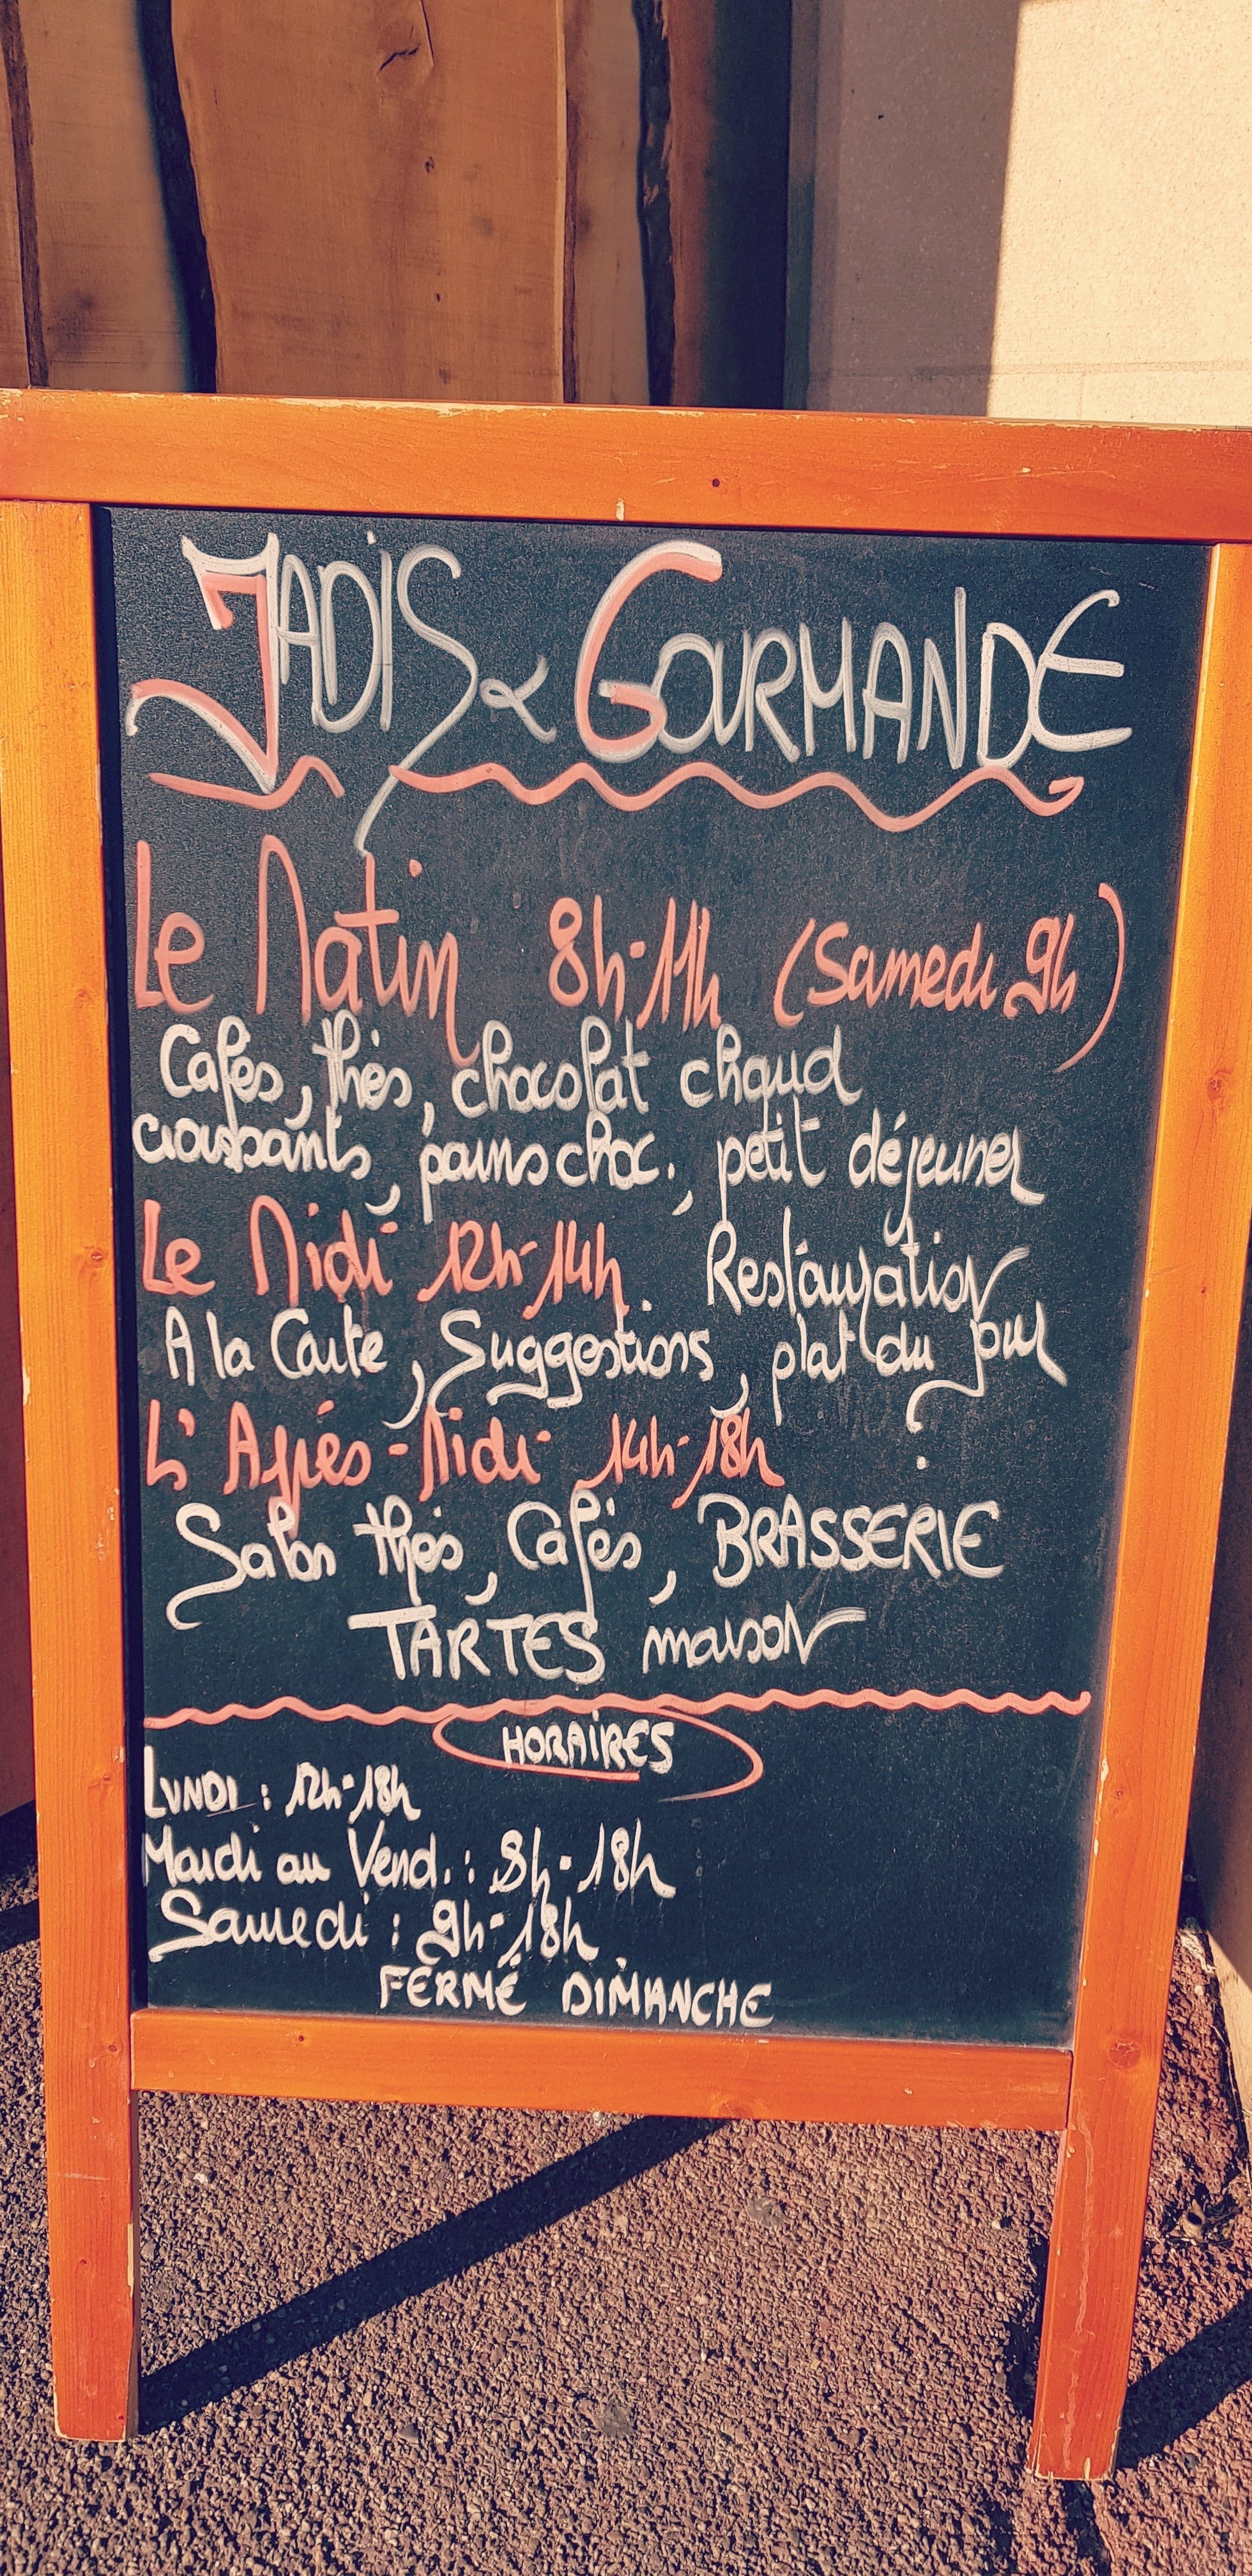 JADIS & GOURMANDE
Le Matin 8h-11h (Samedi 9h)
Cafés, thés, chocolat chaud
croissants, pains choc., petit déjeuner
Le Midi 12h-14h Restauration
A la Carte, Suggestions, plat du jour
L'Après-Midi 14h-18h
Salon thés, Cafés, BRASSERIE
TARTES maison
HORAIRES
LUNDI : 12h-18h
Mardi au Vend. : 8h-18h
Samedi : 9h-18h
FERMÉ DIMANCHE